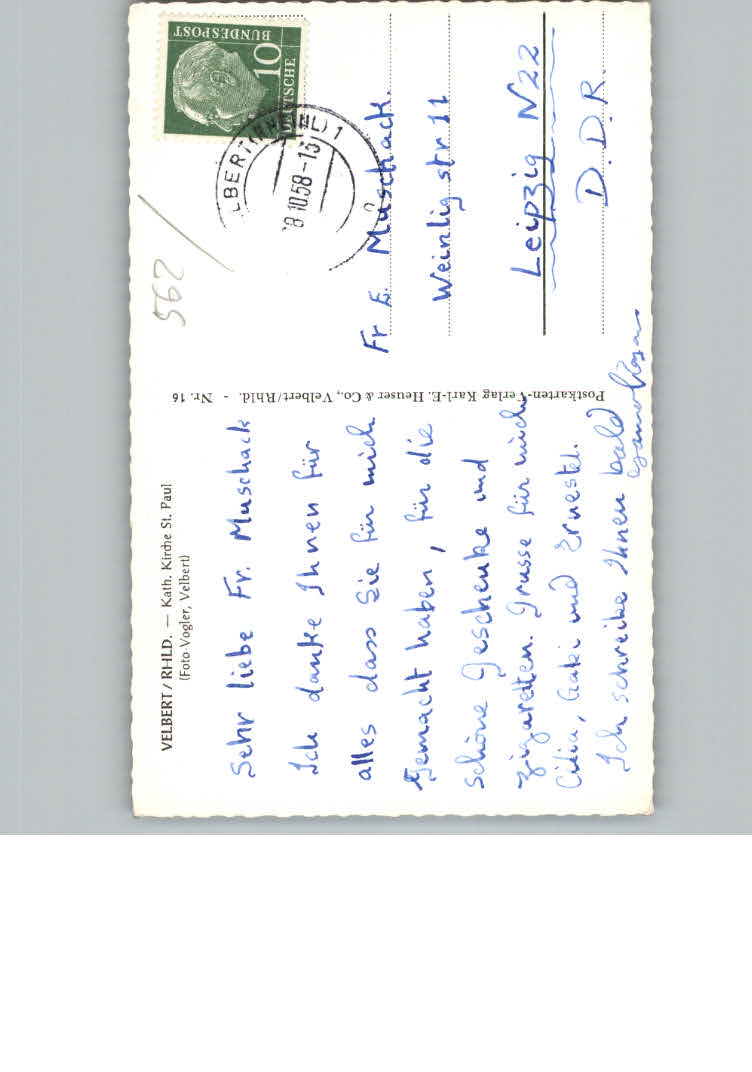 VELBERT / RHLD. — Kath. Kirche St. Paul
(Foto Vogler, Velbert)
Sehr liebe Fr. Muschack
Ich danke Ihnen für
alles dass Sie für mich
Gemacht haben, für die
schöne Geschenke und
zigaretten. Grusse für mich
Cilia, Gaki und Ernestel.
Ich schreibe Ihnen bald
Postkarten-Verlag Karl-E. Heuser & Co., Velbert/Rhld. - Nr. 16
562
DEUTSCHE
BUNDESPOST
10
LBERT (RHEINL) 1
8.10.58-13
Fr E. Muschack.
Weinlig str 11
Leipzig N22
D.D.R.